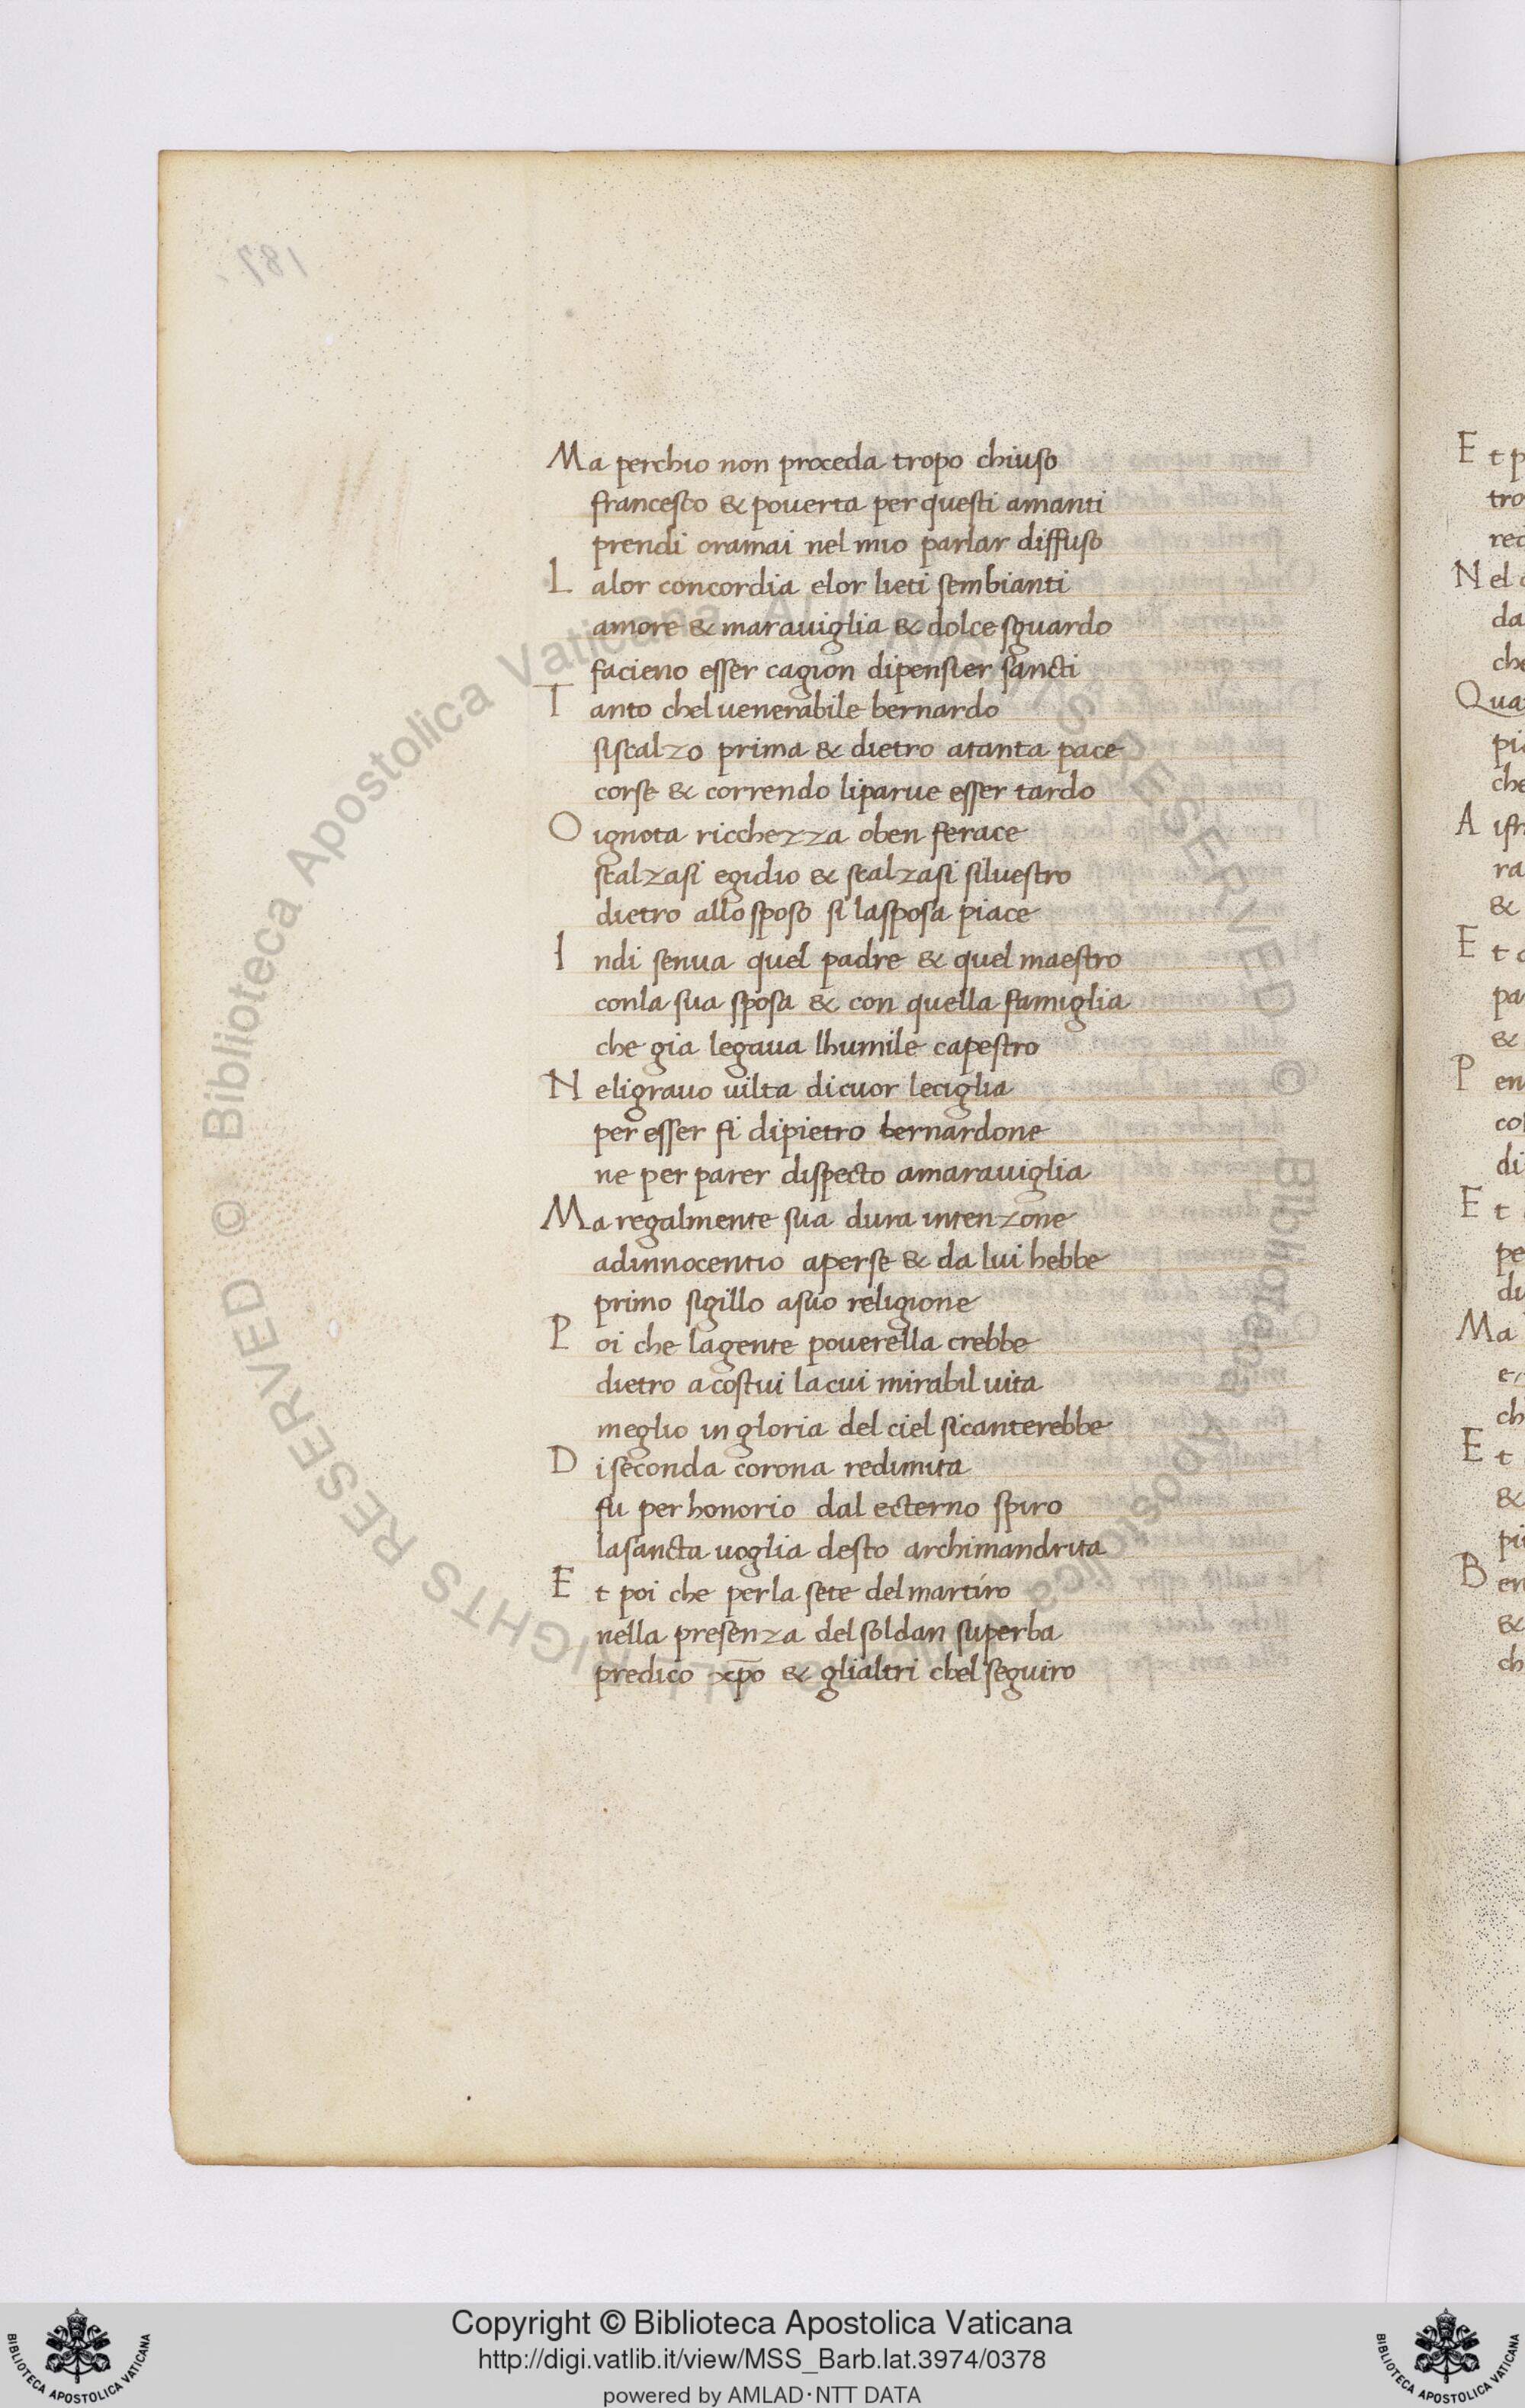 Ma perchio non proceda tropo chiuso
francesco & pouerta per questi amanti
prendi oramai nel mio parlar diffuso
L alor concordia elor lieti sembianti
amore & marauiglia & dolce sguardo
facieno esser cagion dipensier sancti
T anto chel uenerabile bernardo
siscalzo prima & dietro atanta pace
corse & correndo liparue esser tardo
O ignota ricchezza oben ferace
scalzasi egidio & scalzasi siluestro
dietro allo sposo si lasposa piace
I ndi senua quel padre & quel maestro
conla sua sposa & con quella famiglia
che gia legaua lhumile capestro
N eligrauo uilta dicuor leciglia
per esser fi dipietro bernardone
ne per parer dispecto amarauiglia
Ma regalmente sua dura intenzone
adinnocentio aperse & da lui hebbe
primo sigillo asuo religione
P oi che lagente pouerella crebbe
dietro acostui lacui mirabil uita
meglio in gloria del ciel sicanterebbe
D iseconda corona redimita
fu per honorio dal ecterno spiro
lasancta uoglia desto archimandrita
E t poi che perla sete del martiro
nella presenza del soldan superba
predico xp̄o & glialtri chel seguiro
E t p
tro
N el
da
che
Qua
che
A
ra
&
E t
pa
&
P en
di
E t
pe
du
Ma
ch
E t
&
B en
&
ch
187
Biblioteca Apostolica Vaticana ALL RIGHTS RESERVED © Biblioteca Apostolica Vaticana ALL RIGHTS RESERVED ©
Copyright © Biblioteca Apostolica Vaticana
http://digi.vatlib.it/view/MSS_Barb.lat.3974/0378
powered by AMLAD·NTT DATA
BIBLIOTECA APOSTOLICA VATICANA
BIBLIOTECA APOSTOLICA VATICANA